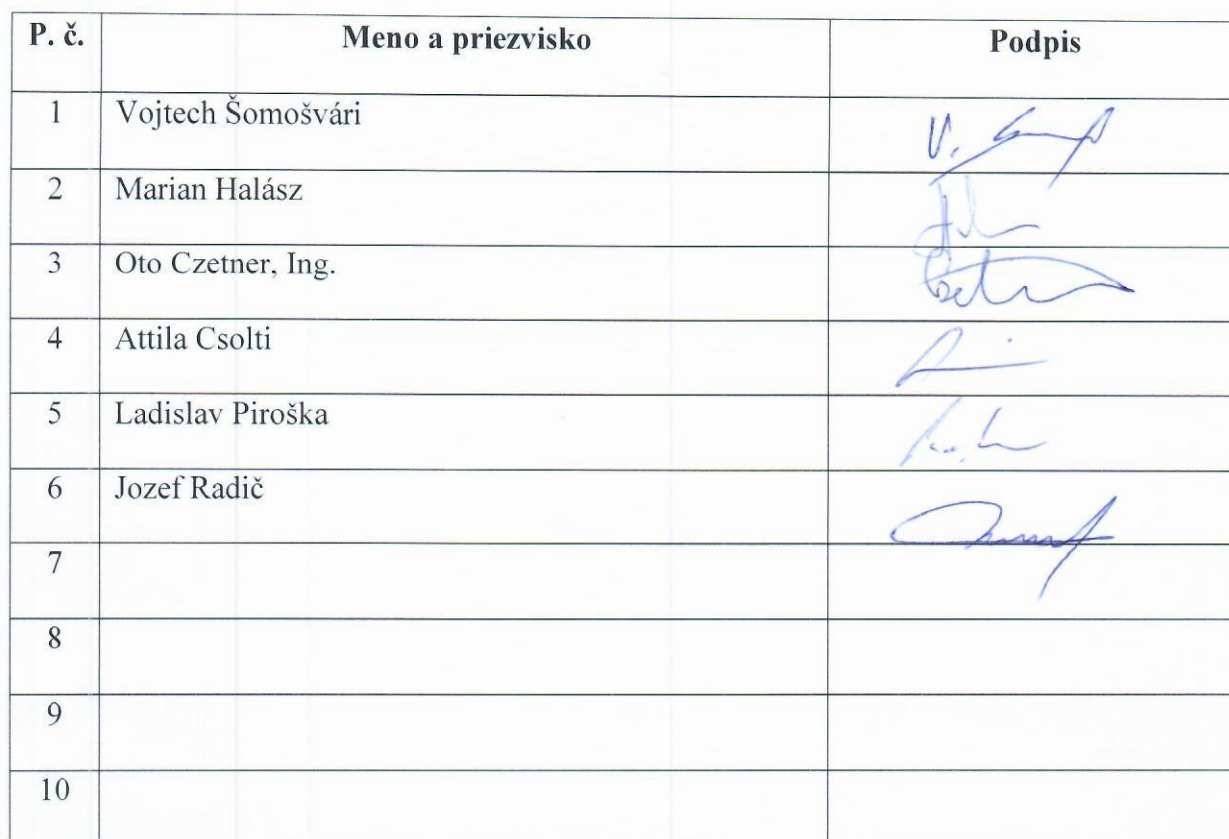 P. č. Meno a priezvisko Podpis
1 Vojtech Šomošvári
2 Marian Halász
3 Oto Czetner, Ing.
4 Attila Csolti
5 Ladislav Piroška
6 Jozef Radič
7
8
9
10